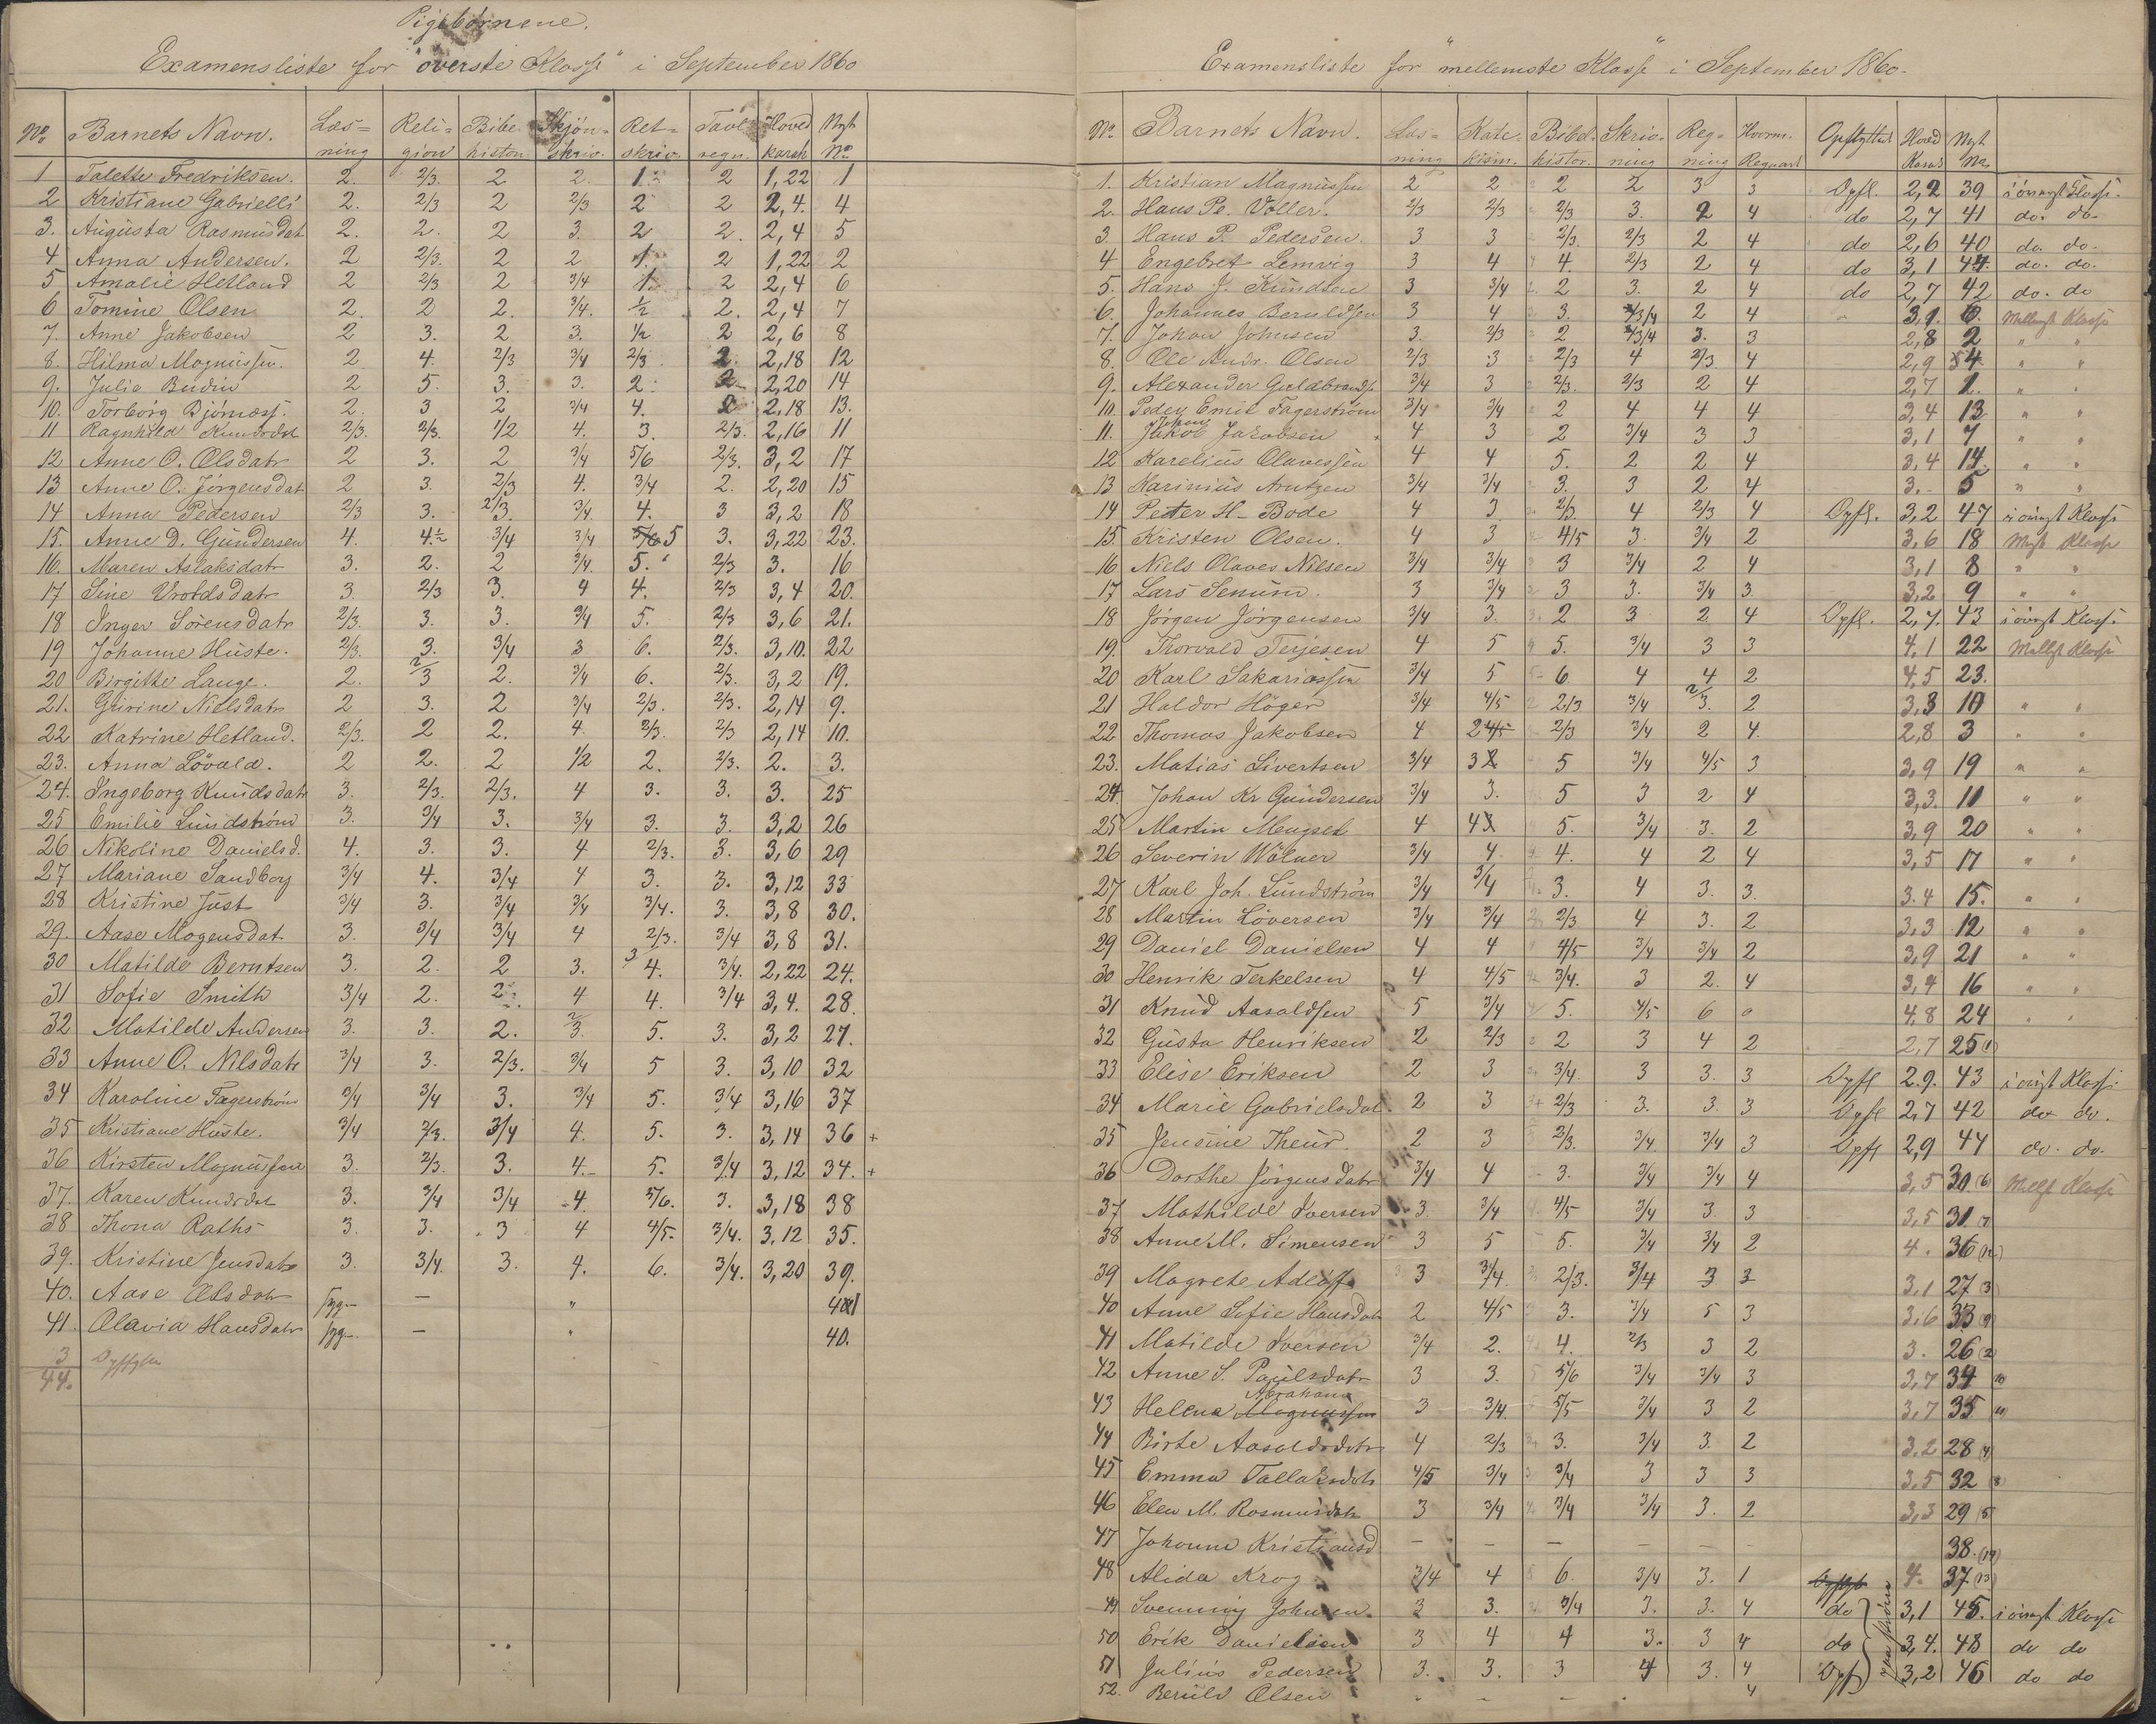 Pigebørnene.
Examensliste for "øverste Klasse" i September 1860
No Barnets Navn. Læs=ning Reli=gion Bibel histor. Skjøn=skriv. Ret=skriv. Tavl regn. Hoved karak Nyt No
1 Talette Fredriksen. 2. 2/3. 2 2. 1. 2 1,22 1
2 Kristiane Gabrielli 2. 2/3 2 2/3 2 2 2,4. 4
3. Augusta Rasmusdat 2. 2. 2 3. 2 2. 2,4 5
4 Anna Andersen. 2 2/3. 2 2 1. 2 1,22 2
5 Amalie Hetland 2 2/3 2 3/4 1. 2 2,4 6
6 Tomine Olsen 2. 2 2. 3/4. 1/2 2. 2,4 7
7. Anne Jakobsen 2 3. 2 3. 1/2 2 2,6 8
8. Hilma Magnussen. 2 4. 2/3 3/4 2/3. 2. 2,18 12
9. Julie 2 5. 3. 3. 2. 2 2,20 14
10. Torborg Bjørnæss. 2. 3 2 3/4 4. 2 2,18 13.
11 Ragnhild Knudsdat 2/3. 2/3. 1/2 4. 3. 2/3. 2,16 11
12 Anne O. Olsdatr 2 3. 2 3/4 5/6 2/3. 3,2 17
13 Anne O. Jörgensdat 2 3. 2/3 4. 3/4 2. 2,20 15
14 Anna Pedersen 2/3 3. 2/3. 3/4. 4. 3 3,2 18
15. Anne D. Gundersen 4. 4 1/2 3/4 3/4 5/6 5 3. 3,22 23.
16. Maren Aslaksdatr 3. 2. 2 3/4. 5. 2/3 3. 16
17 Sine Vrotdsdatr 3 2/3 3. 4 4. 2/3 3,4 20.
18 Inger Sörensdatr 2/3. 3. 3. 3/4 5. 2/3 3,6 21.
19 Johanne Huste. 2/3. 3. 3/4 3 6. 2/3. 3,10. 22
20 Birgitte Lange. 2. 2/3 2. 3/4 6. 2/3. 3,2 19.
21. Gurine Nielsdatr 2 3. 2 3/4 2/3. 2/3. 2,14 9.
22 Katrine Hetland. 2/3. 2 2. 4 2/3. 2/3 2,14 10.
23. Anna Lövald. 2 2. 2 1/2 2. 2/3. 2. 3.
24. Ingeborg Knudsdatr 3. 2/3. 2/3. 4 3. 3. 3. 25
25 Emilie Lundström 3. 3/4 3. 3/4 3. 3. 3,2 26
26 Nikoline Danielsd. 4. 3. 3. 4 2/3. 3. 3,6 29
27 Mariane Sandborg 3/4 4. 3/4 4 3. 3. 3,12 33
28 Kristine Just 3/4 3. 3/4 3/4 3/4. 3. 3,8 30.
29. Aase Mogensdat 3. 3/4 3/4 4 2/3. 3/4 3,8 31.
30 Matilde Berntsen 3. 2. 2 3. 3 4. 3/4. 2,22 24.
31 Sofie Smith 3/4 2. 2. 4 4. 3/4 3,4. 28.
32 Matilde Andersen 3. 3. 2. 2/3. 5. 3. 3,2 27.
33 Anne O. Nilsdatr 3/4 3. 2/3. 3/4 5 3. 3,10 32
34 Karoline Fagerström 3/4 3/4 3. 3/4 5. 3/4 3,16 37
35 Kristiane Huste. 3/4 2/3. 3/4 4. 5. 3. 3,14 36 +
36 Kirsten Magnussen 3. 2/3. 3. 4. 5. 3/4 3,12 34. +
37. Karen Knudsdat 3. 3/4 3/4 4 5/6. 3. 3,18 38
38 Thona Raths 3. 3. 3 4 4/5. 3/4. 3,12 35.
39. Kristine Jensdatr 3. 3/4. 3. 4. 6. 3/4. 3,20 39.
40. Aase Olsdatr syg — — " 41
41. Olavia Hansdatr syg — — " 40.
3
44.
Examensliste for "mellemste Klasse" i September 1860.
No. Barnets Navn. Læs=ning Kate=kism. Bibel=histor. Skriv=ning Reg=ning Opflyttet Hoved Karak Nyt No.
1. Kristian Magnussen 2 2 2 2 3 3 Opfl. 2,2 39 i øverst Klasse.
2. Hans Pe. Voller. 2/3 2/3 2/3 3. 2 4 do 2,7 41 do. do.
3. Hans P. Pedersen 3 3 2/3. 2/3 2 4 do 2,6 40 do. do.
4 Engebret Lemvig 3 4 4. 2/3 2 4 do 3,1 44. do. do.
5. Hans J. Knudsen 3 3/4 2 3. 2 4 do 2,7 42 do. do
6. Johannes Beruldsen 3 4 3. 3/4 2 4 3,1 6. Mellemst Klasse
7. Johan Johnsen 3. 2/3 2 3/4 3. 3 2,8 2 " "
8. Ole Andr. Olsen 2/3 3 2/3 4 2/3 4 2,9 4. " "
9. Alexander Guldbrands. 3/4 3 2/3. 2/3 2 4 2,7 1. " "
10. Peder Emil Fagerström 3/4 3/4 2 4 4 4 3,4 13 " "
11. Johan Jakob Jakobsen 4 3 2 3/4 3 3 3,1 7 " "
12 Karelius Olavessen 4 4 5. 2 2 4 3,4 14. " "
13 Karinius Arntzen 3/4 3/4 3. 3 2 4 3,- 5 " "
14 Peter H. Bode 4 3 2/3 4 2/3 4 Opfl. 3,2 47 i øverst Klasse
15. Kristen Olsen. 4 3 4/5 3. 3/4 2 3,6 18 Mellst Klasse
16 Niels Olaves Nilsen 3/4 3/4 3 3/4 2 4 3,1 8 " "
17 Lars Senum. 3 3/4 3 3. 3/4 3 3,2 9 " "
18 Jörgen Jörgensen 3/4 3. 2 3 2 4 Opfl. 2,7. 43 i øverst Klasse.
19. Thorvald Terjesen 4 5 5. 3/4 3 3 4,1 22 Mellst Klasse
20 Karl Sakariassen 3/4 5 6. 4 4 2 4,5 23.
21 Haldor Höger 3/4 4/5 2/3 3/4 2/3. 2 3,3 10 " "
22 Thomas Jakobsen 4 2 4/5 2/3 3/4 2 4. 2,8 3 " "
23. Matias Sivertsen 3/4 3 5 3/4 4/5 3 3,9 19 " "
24. Johan Kr Gundersen 3/4 3. 5 3 2 4 3,3. 11 " "
25 Martin Mengset 4 4 5. 3/4 3. 2 3,9 20 " "
26 Severin Wölner 3/4 4 4. 4 2 4 3,5 17 " "
27 Karl Joh. Lundström 3/4 3/4 3. 4 3. 3. 3.4 15. " "
28 Martin Löversen 3/4 3/4 2/3 4 3. 2 3,3 12 " "
29 Daniel Danielsen 4 4 4/5 3/4 3/4 2 3,9 21 " "
30 Henrik Terkelsen 4 4/5 3/4. 3 2. 4 3,4 16 " "
31 Knud Aasaldsen 5 3/4 5. 4/5 6 0 4,8 24 " "
32 Gusta Henriksen 2 2/3 2 3 4 2 2,7 25 (1)
33 Elise Eriksen 2 3 3/4. 3 3. 3 Opfl 2.9. 43 i øverst Klasse
34 Marie Gabrielsdat. 2 3 2/3 3. 3. 3 Opfl 2,7 42 do do.
35 Jensine Theur. 2 3 2/3. 3/4 3/4 3 Opfl 2,9 44 do. do.
36 Dorthe Jörgensdatr 3/4 4 3. 3/4 3/4 4 3,5 30 (6) Mellst Klasse
37 Mathilde Iversen 3. 3/4 4/5 3/4 3. 3 3,5 31 (7)
38 Anne M. Simensen 3 5 5. 3/4 3/4 2 4. 36 (12)
39 Magrete Adolfs 3 3/4 2/3. 3/4 3 3 3,1 27 (3)
40 Anne Sofie Hansdatr 2 4/5 3. 3/4 5 3 3,6 33 (9)
41 Matilde Iversen 3/4 2. 4. 2/3 3 2 3. 26 (2)
42 Anne S. Paulsdatr 3 3. 5/6 3/4 3/4 3 3,7 34 10
43 Helena Magnussen Abrahams 3 3/4 5/5 3/4 3 2 3,7 35 (11)
44 Birte Aasaldsdatr 4 2/3 3. 3/4 3. 2 3.2 28 (4)
45 Emma Tallaksdatr 4/5 3/4 3/4 3 3 3 3,5 32 (8)
46 Elen M. Rasmusdatr 3 3/4 3/4 3/4 3. 2 3,3 29 (5)
47 Johanne Kristiansd — — — — — — 38. (14)
48 Alida Krog 3/4 4 6. 3/4 3. 1 4. 37. (13)
49 Svenning Johnsen. 3 3. 3/4 3. 3. 4 do 3,1 45. i øverst Klasse
50 Erik Danielsen 3 4 4 3. 3 4 do 3,4. 48 do do
51 Julius Pedersen 3. 3. 3 4 3. 4 Opf 3,2 46 do do
52. Beruld Olsen - - - - 4